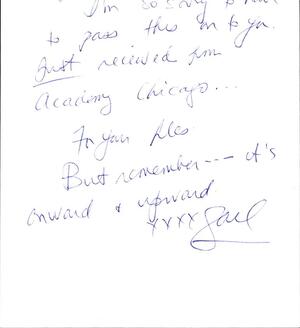 I'm so sorry to have
to pass this on to you.
Just received from
Academy Chicago...
For your files
But remember --- it's
onward & upward
xxxx Gail